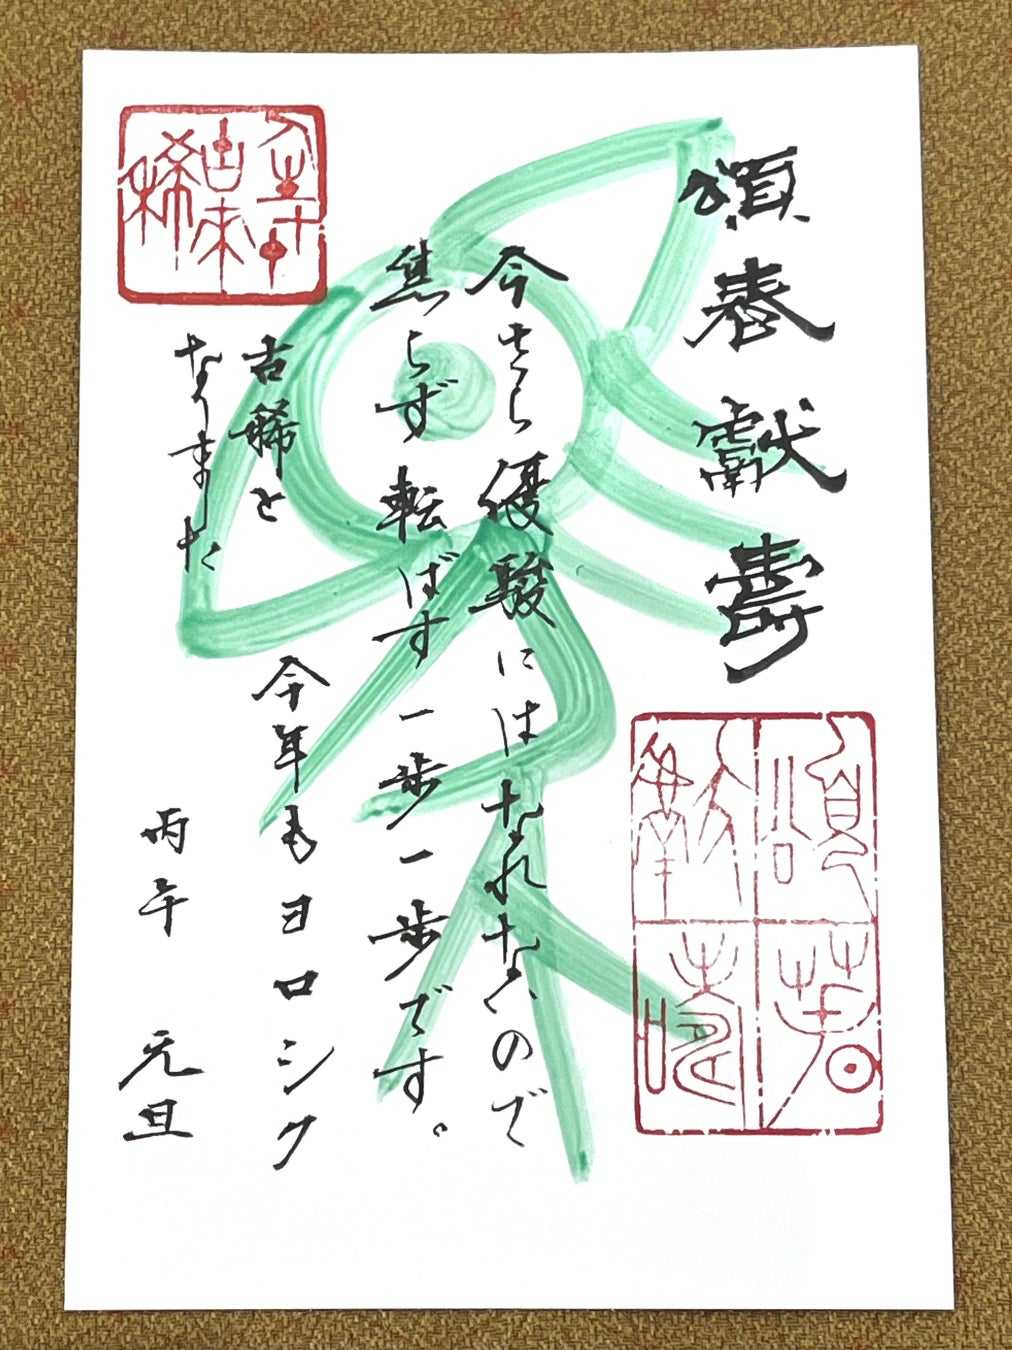 頌春献壽
今さら優駿にはなれないので
焦らず転ばす一歩一歩です。
古稀と
なりました
今年もヨロシク
丙午 元旦
人生七十
古来
稀